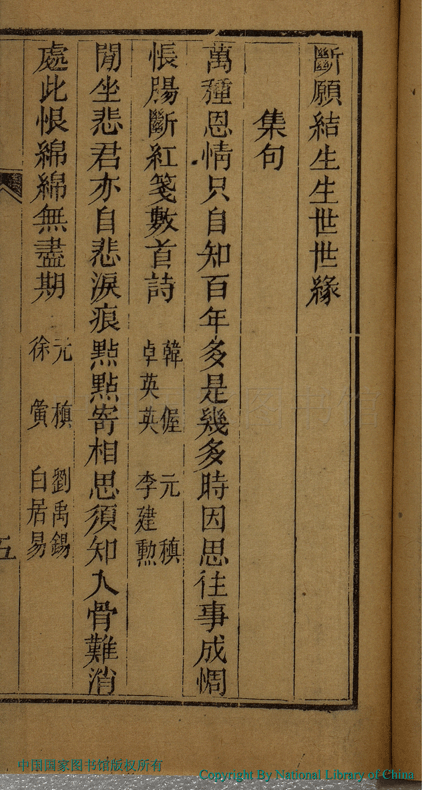 斷願結生生世世緣
集句
萬種恩情只自知百年多是幾多時因思往事成惆
悵腸斷紅箋數首詩 韓偓 元稹 卓英英 李建勲
閒坐悲君亦自悲淚痕點點寄相思須知入骨難消
處此恨綿綿無盡期 元稹 劉禹錫 徐夤 白居易
五
中国国家图书馆版权所有
Copyright By National Library of China